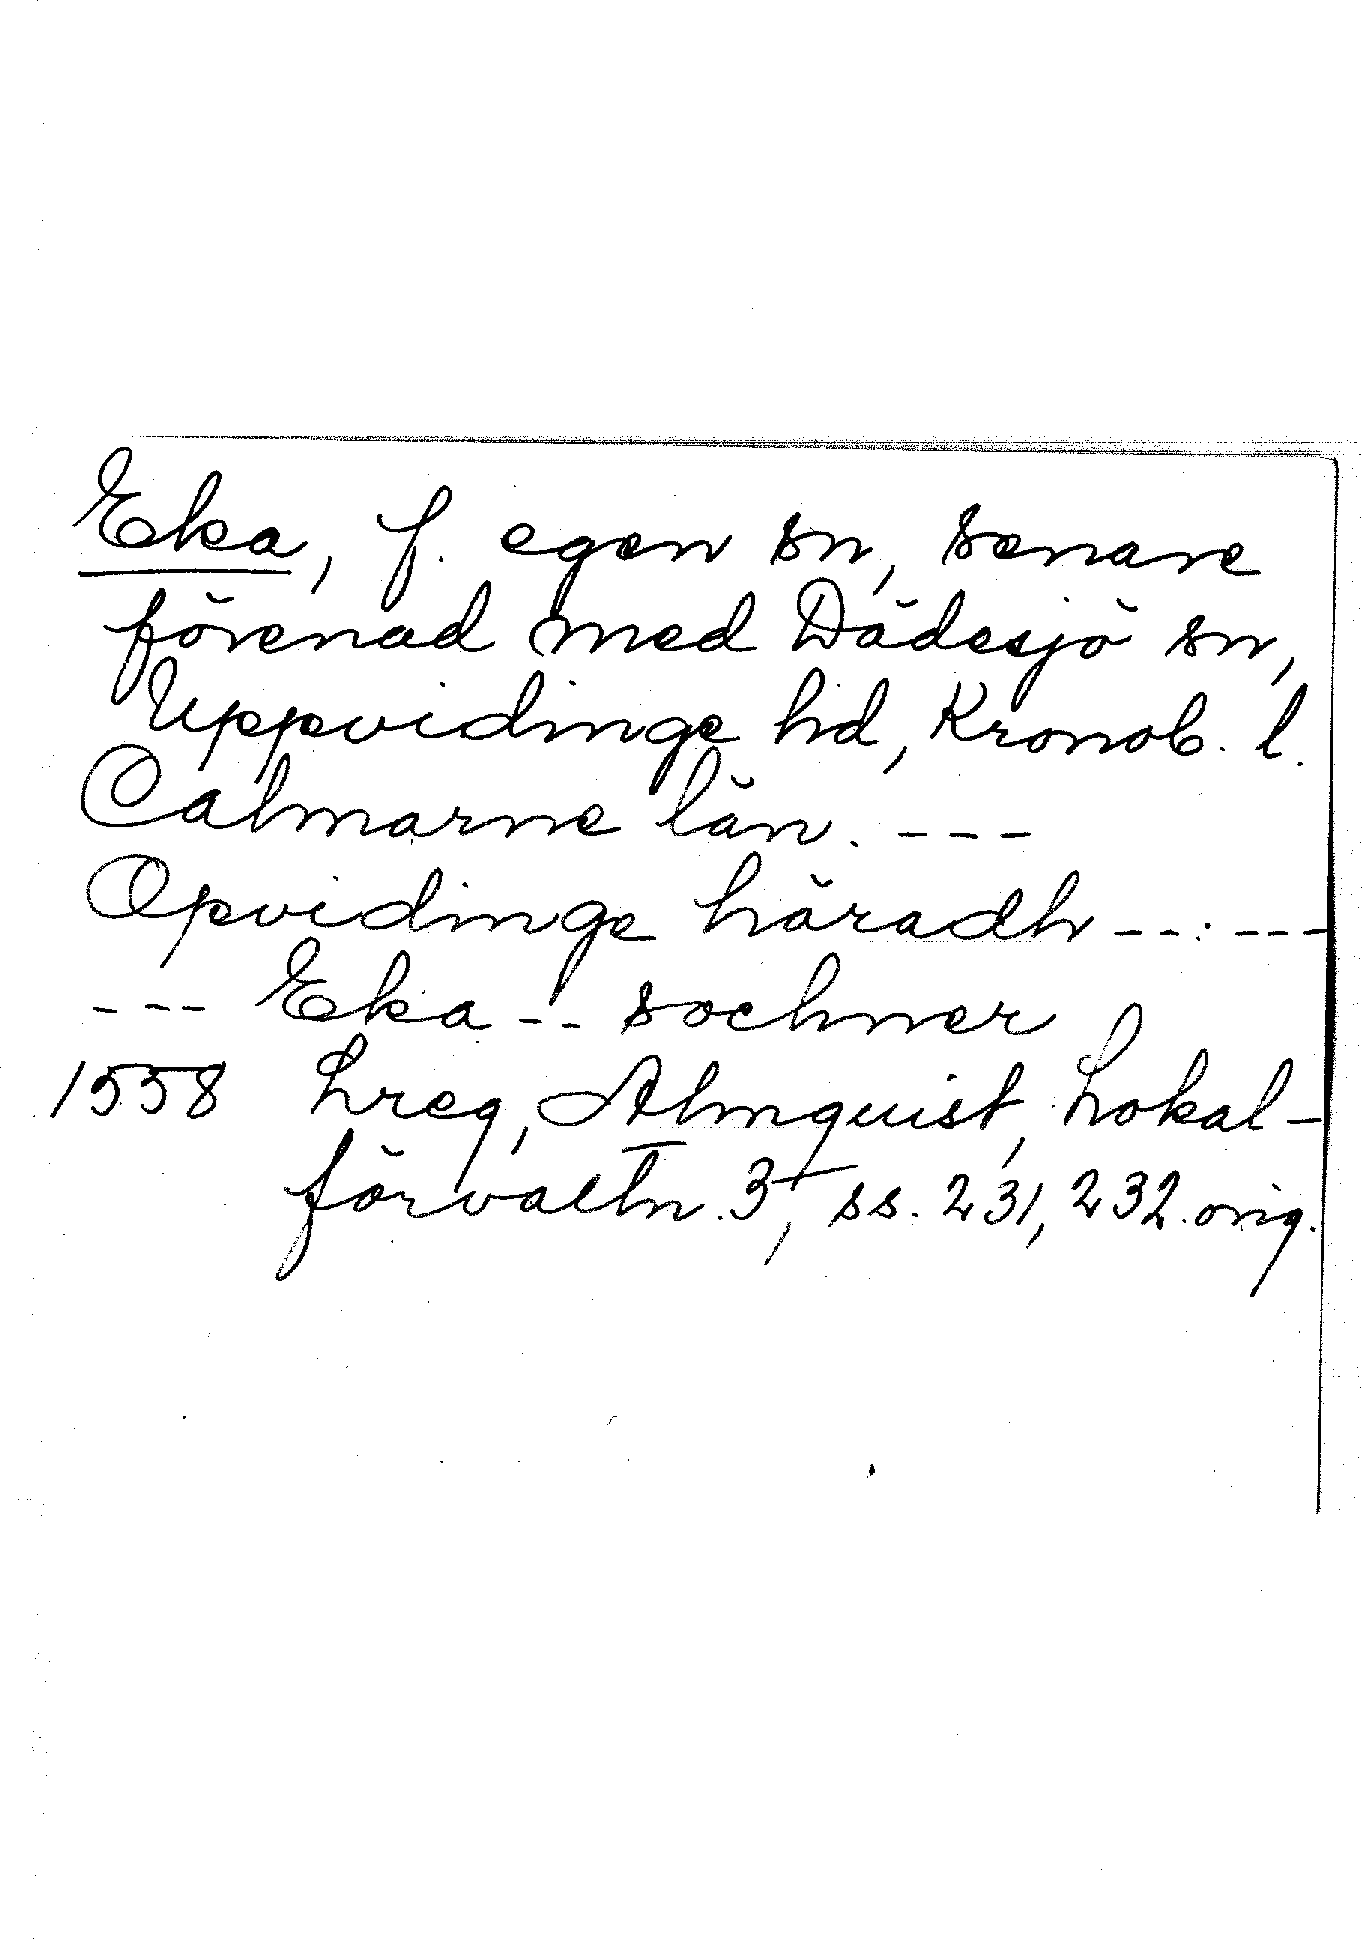 Eka, f. egen sn, senare
förenad med Dädesjö sn,
Uppvidinge hd, Kronob. l.
Calmarne län. ---
Opvidinge häradh --: ---
--- Eka -- sochner
1558 Lreg, Almquist, Lokal-
förvaltn. 3, ss. 231, 232. orig.